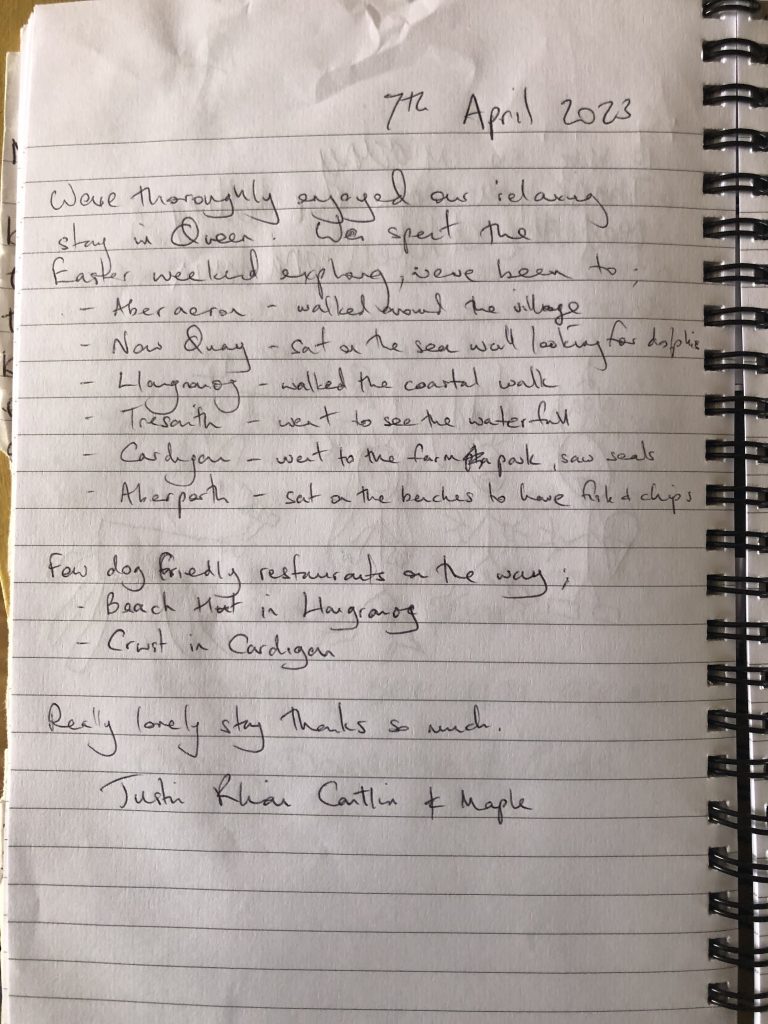 7th April 2023
Weve thoroughly enjoyed our relaxing
stay in Queen. We spent the
Easter weekend exploring, weve been to;
- Aberaeron - walked around the village
- New Quay - sat on the sea wall looking for dolphins
- Llangranog - walked the coastal walk
- Tresaith - went to see the waterfall
- Cardigan - went to the farm park, saw seals
- Aberporth - sat on the benches to have fish & chips
Few dog friedly restaurants on the way;
- Beach Hut in Llangranog
- Crwst in Cardigan
Really lovely stay thanks so much.
Justin Rhian Caitlin & Maple